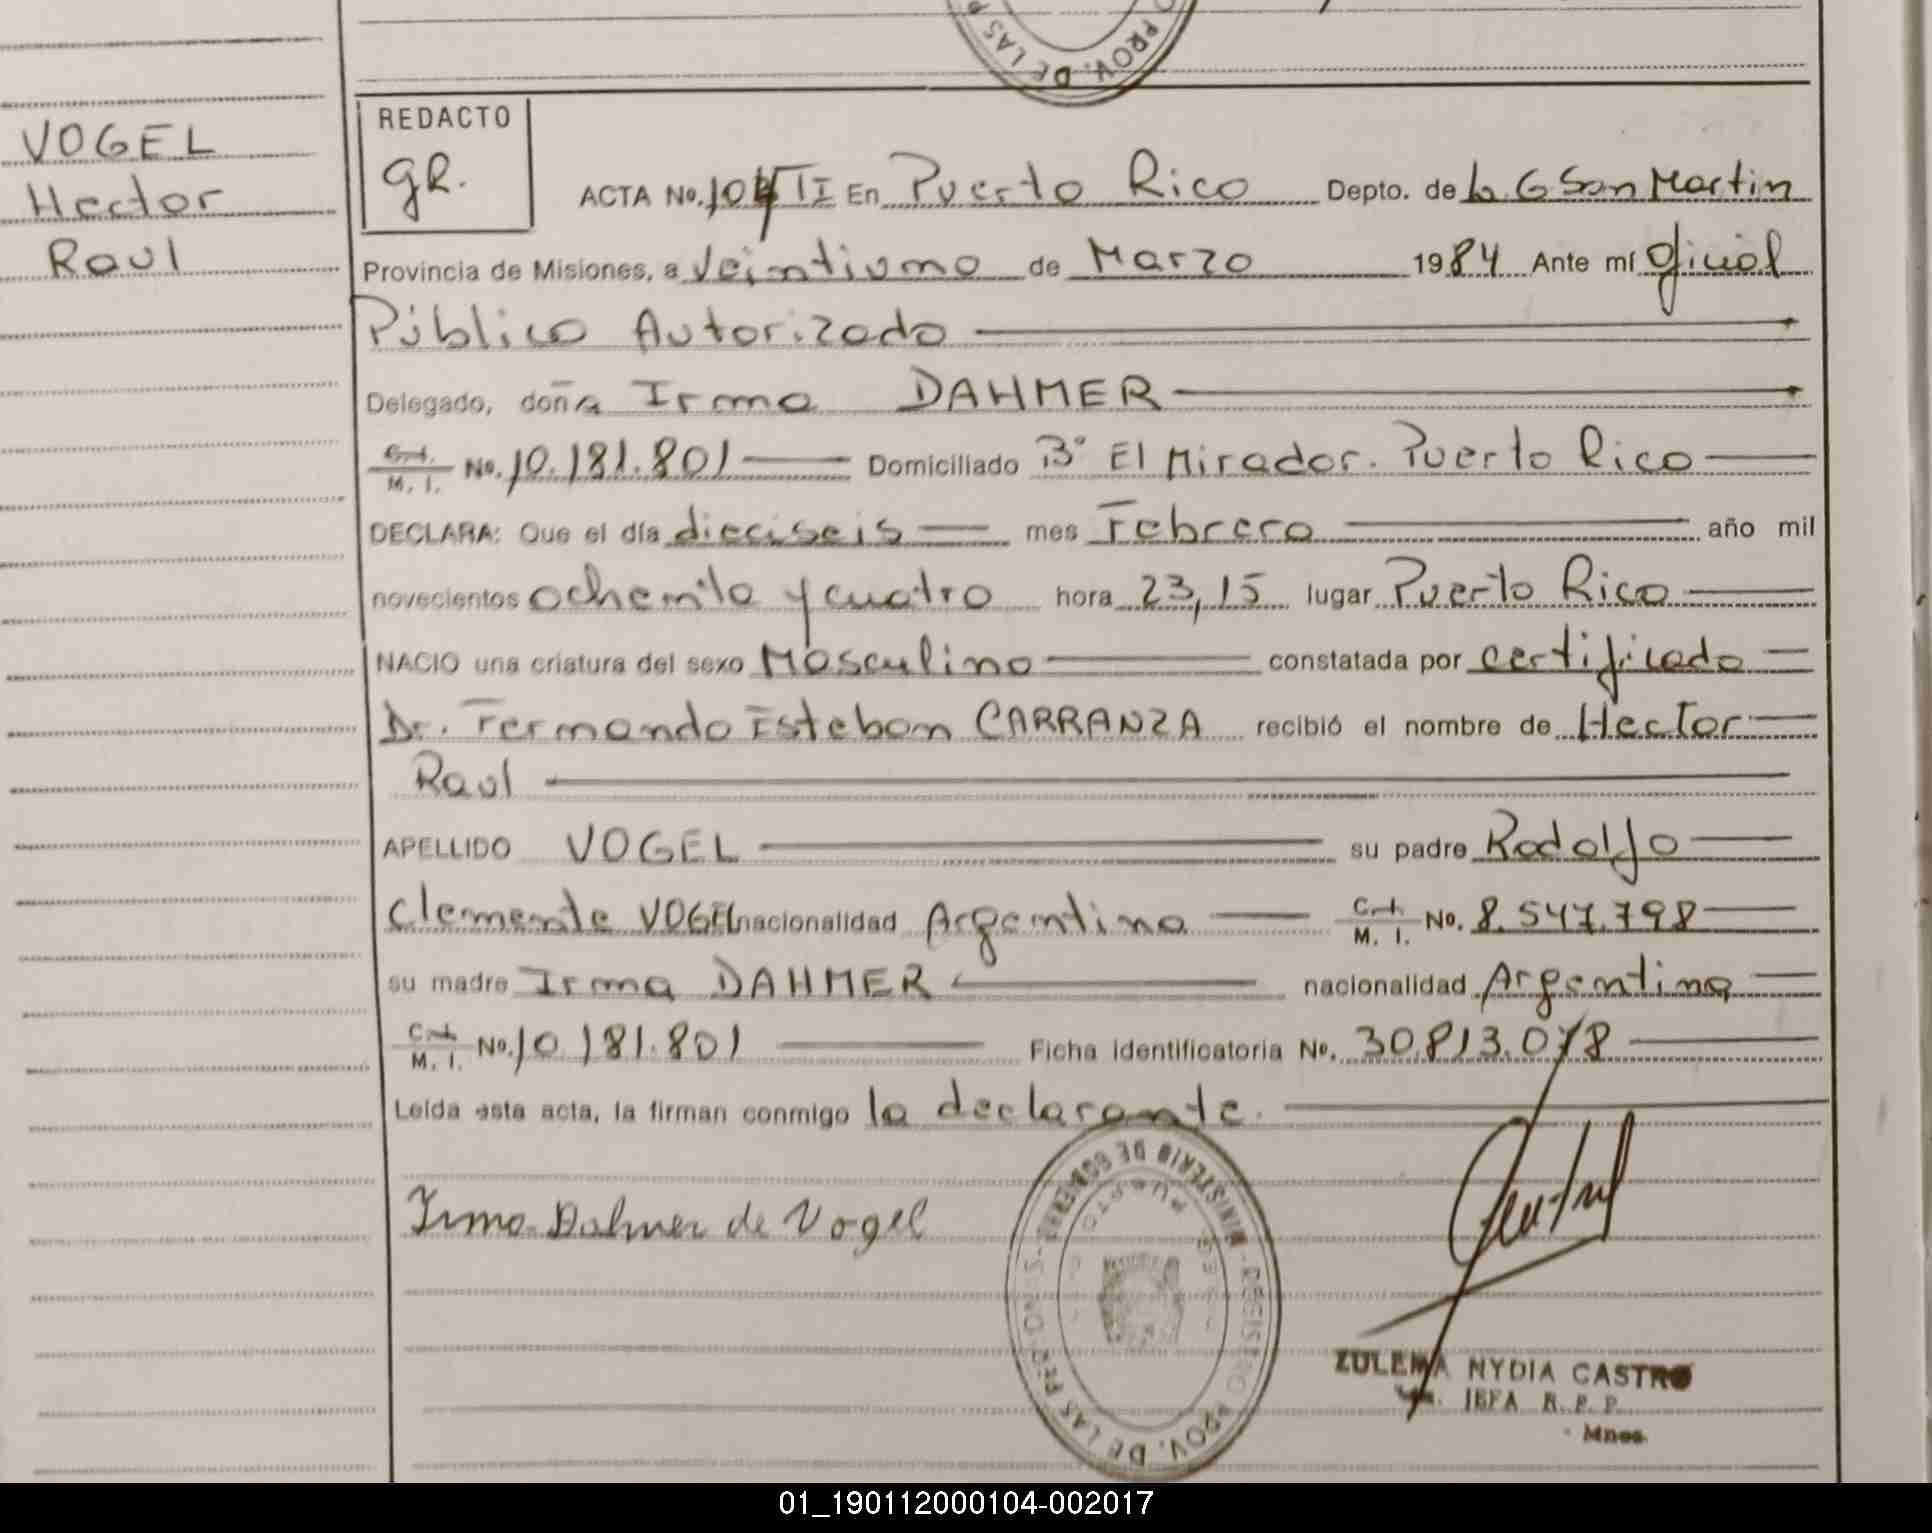 PROV. DE LAS P
VOGEL
Hector
Raul
REDACTO
GR.
ACTA No. 104 TI En Puerto Rico Depto. de L. G San Martin
Provincia de Misiones, a Veintiuno de Marzo 1984 Ante mí Oficial
Público Autorizado
Delegado, doña Irma DAHMER
C. I. M. I. No. 10.181.801 Domiciliado B° El Mirador. Puerto Rico
DECLARA: Que el día dieciseis mes Febrero año mil
novecientos ochenta y cuatro hora 23,15 lugar Puerto Rico
NACIO una criatura del sexo Masculino constatada por certificado
Dr. Fernando Esteban CARRANZA recibió el nombre de Hector
Raul
APELLIDO VOGEL su padre Rodolfo
Clemente VOGEL nacionalidad Argentina C. I. M. I. No. 8.547.798
su madre Irma DAHMER nacionalidad Argentina
C. I. M. I. No. 10.181.801 Ficha identificatoria No. 30.813.078
Leída esta acta, la firman conmigo la declarante.
Irma Dahmer de Vogel
MINISTERIO DE GOBIERNO - REGISTRO PROV. DE LAS PERSONAS
PUERTO
ZULEMA NYDIA CASTRO
JEFA R. P. P.
Mnes.
01_190112000104-002017